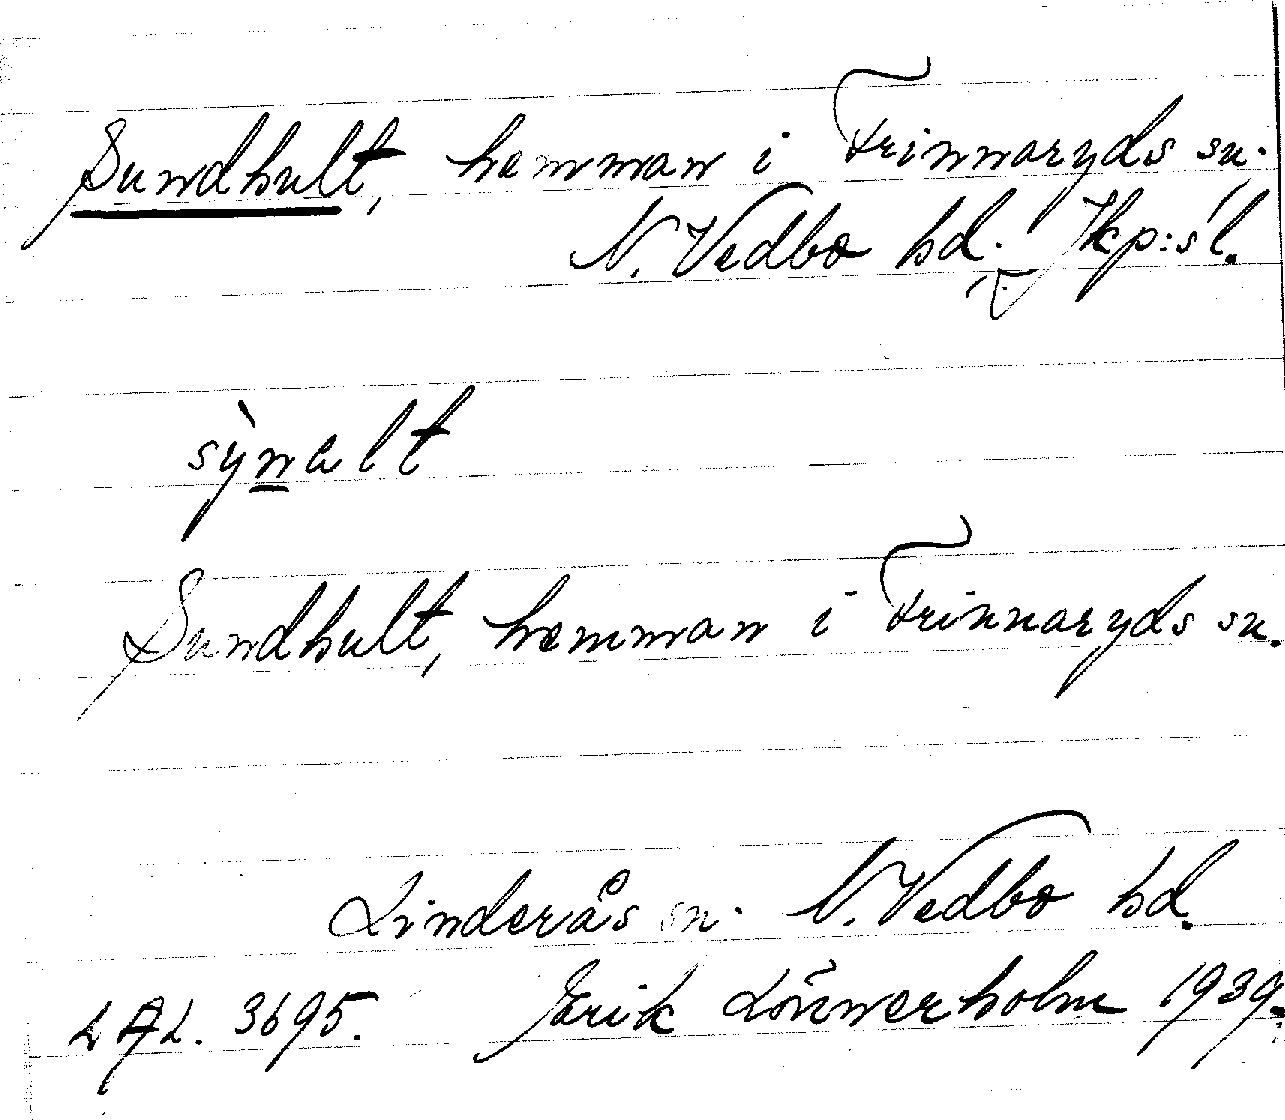 Sundhult, hemman i Frinnaryds sn.
N. Vedbo hd. Jkp:s l.
sỳnalt
Sundhult, hemman i Frinnaryds sn.
Linderås sn. N. Vedbo hd.
LAL. 3695. Erik Lönnerholm 1939.